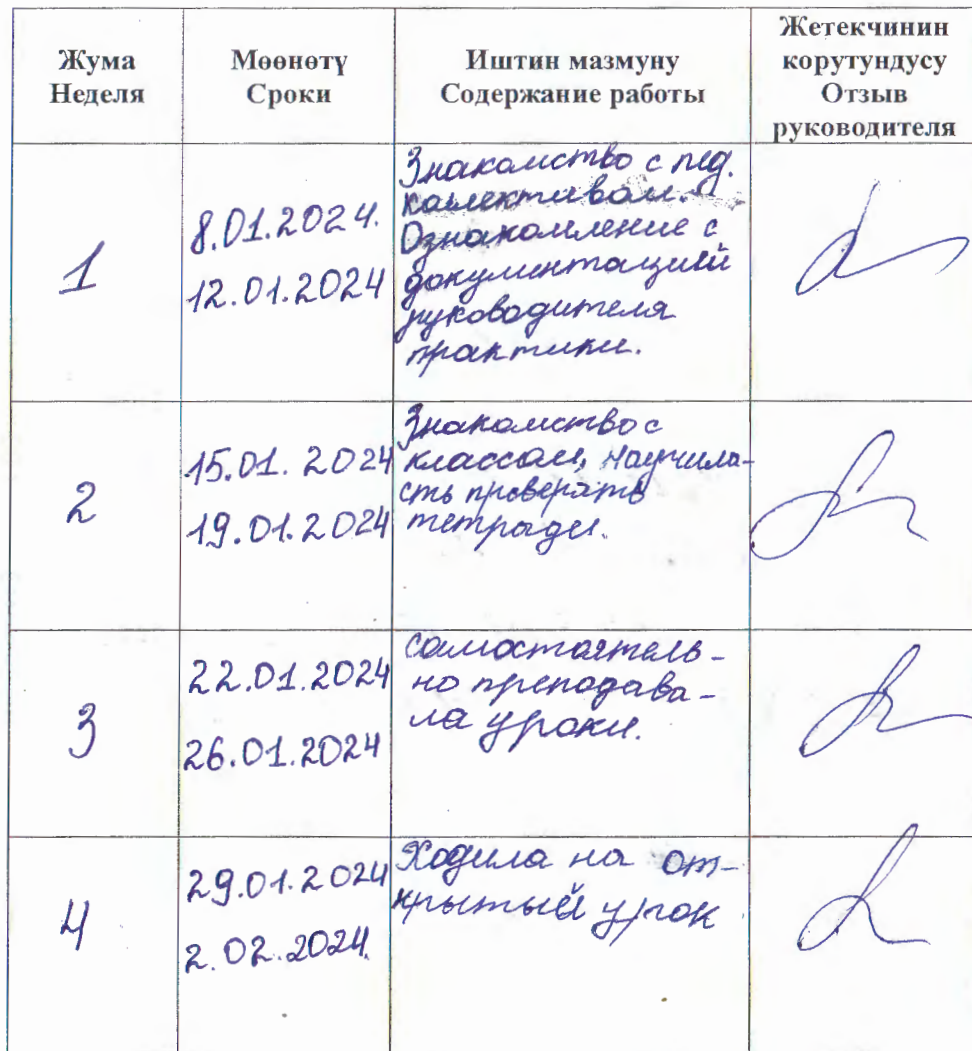 Жума
Неделя
Мөөнөтү
Сроки
Иштин мазмуну
Содержание работы
Жетекчинин
корутундусу
Отзыв
руководителя
1
8.01.2024.
12.01.2024
Знакомство с пед.
коллективом.
Ознакомление с
документацией
руководителя
практики.
2
15.01.2024
19.01.2024
Знакомство с
классом, научила-
сть проверять
тетради.
3
22.01.2024
26.01.2024
самостоятель-
но преподава-
ла уроки.
4
29.01.2024
2.02.2024.
Ходила на от-
крытый урок